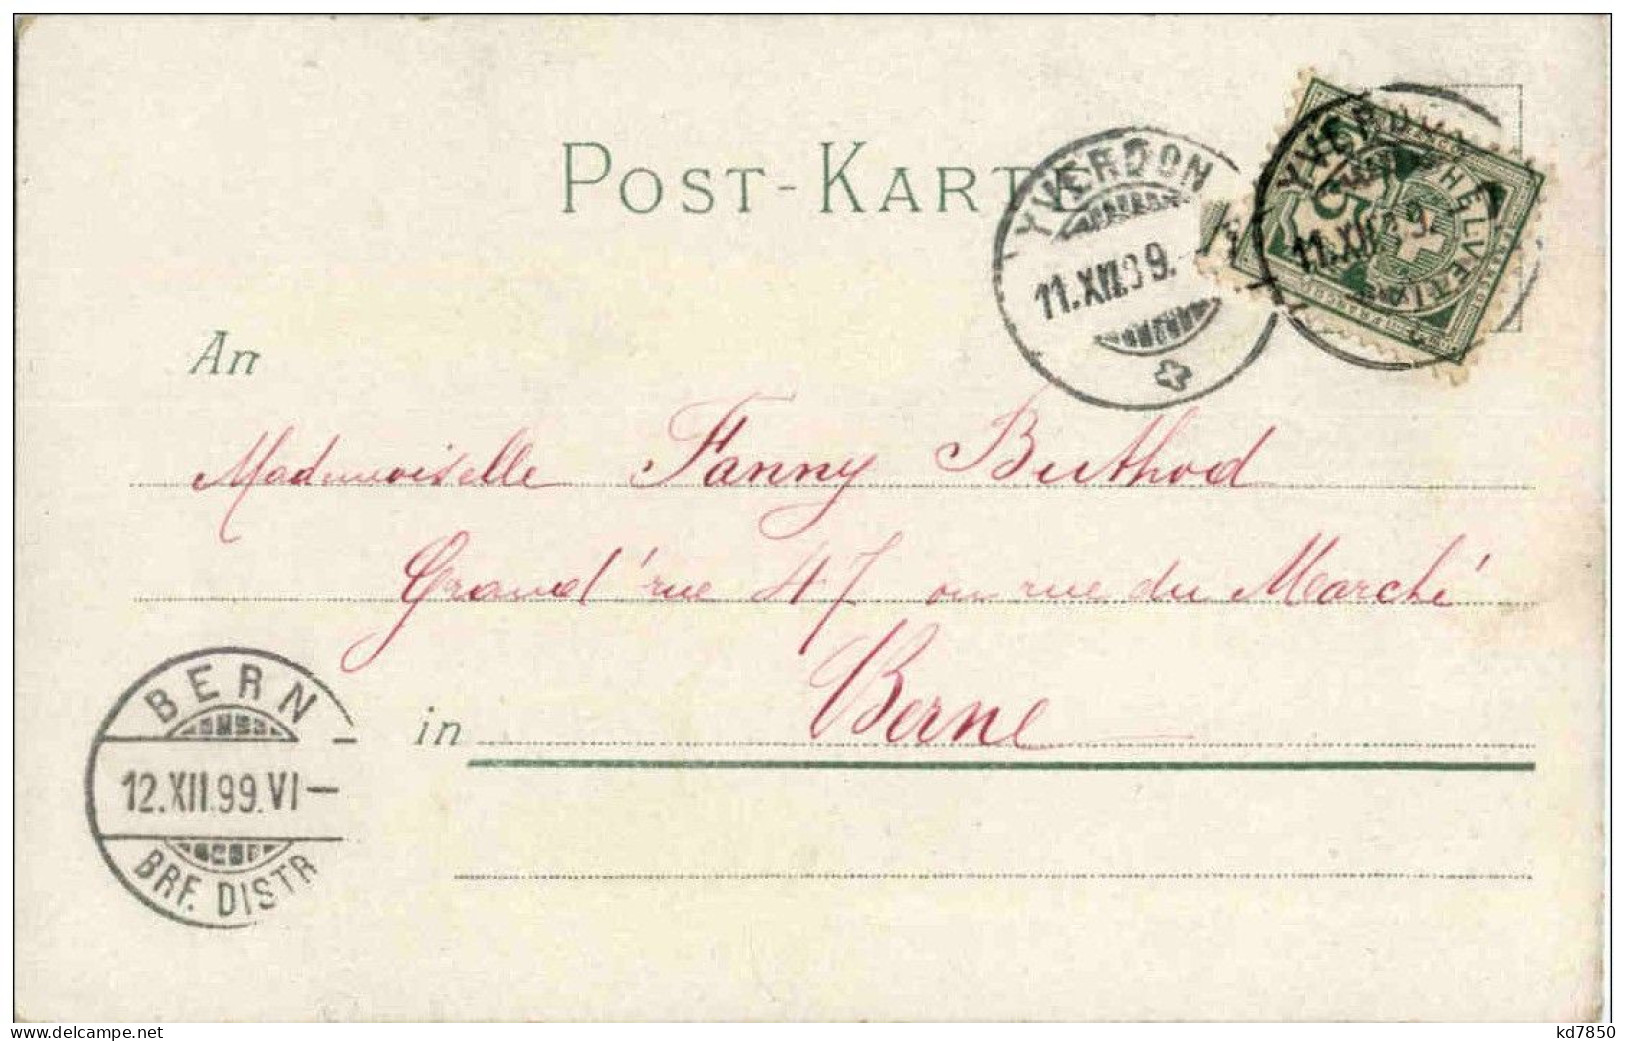 POST-KARTE
YVERDON
11.XII.99.
YVERDON
11.XII.99.
HELVETIA
5
An
Mademoiselle Fanny Buthod
Grand'rue 47 ou rue du Marché
in Berne
BERN
12.XII.99.VI-
BRF. DISTR
www.delcampe.net
kd7850